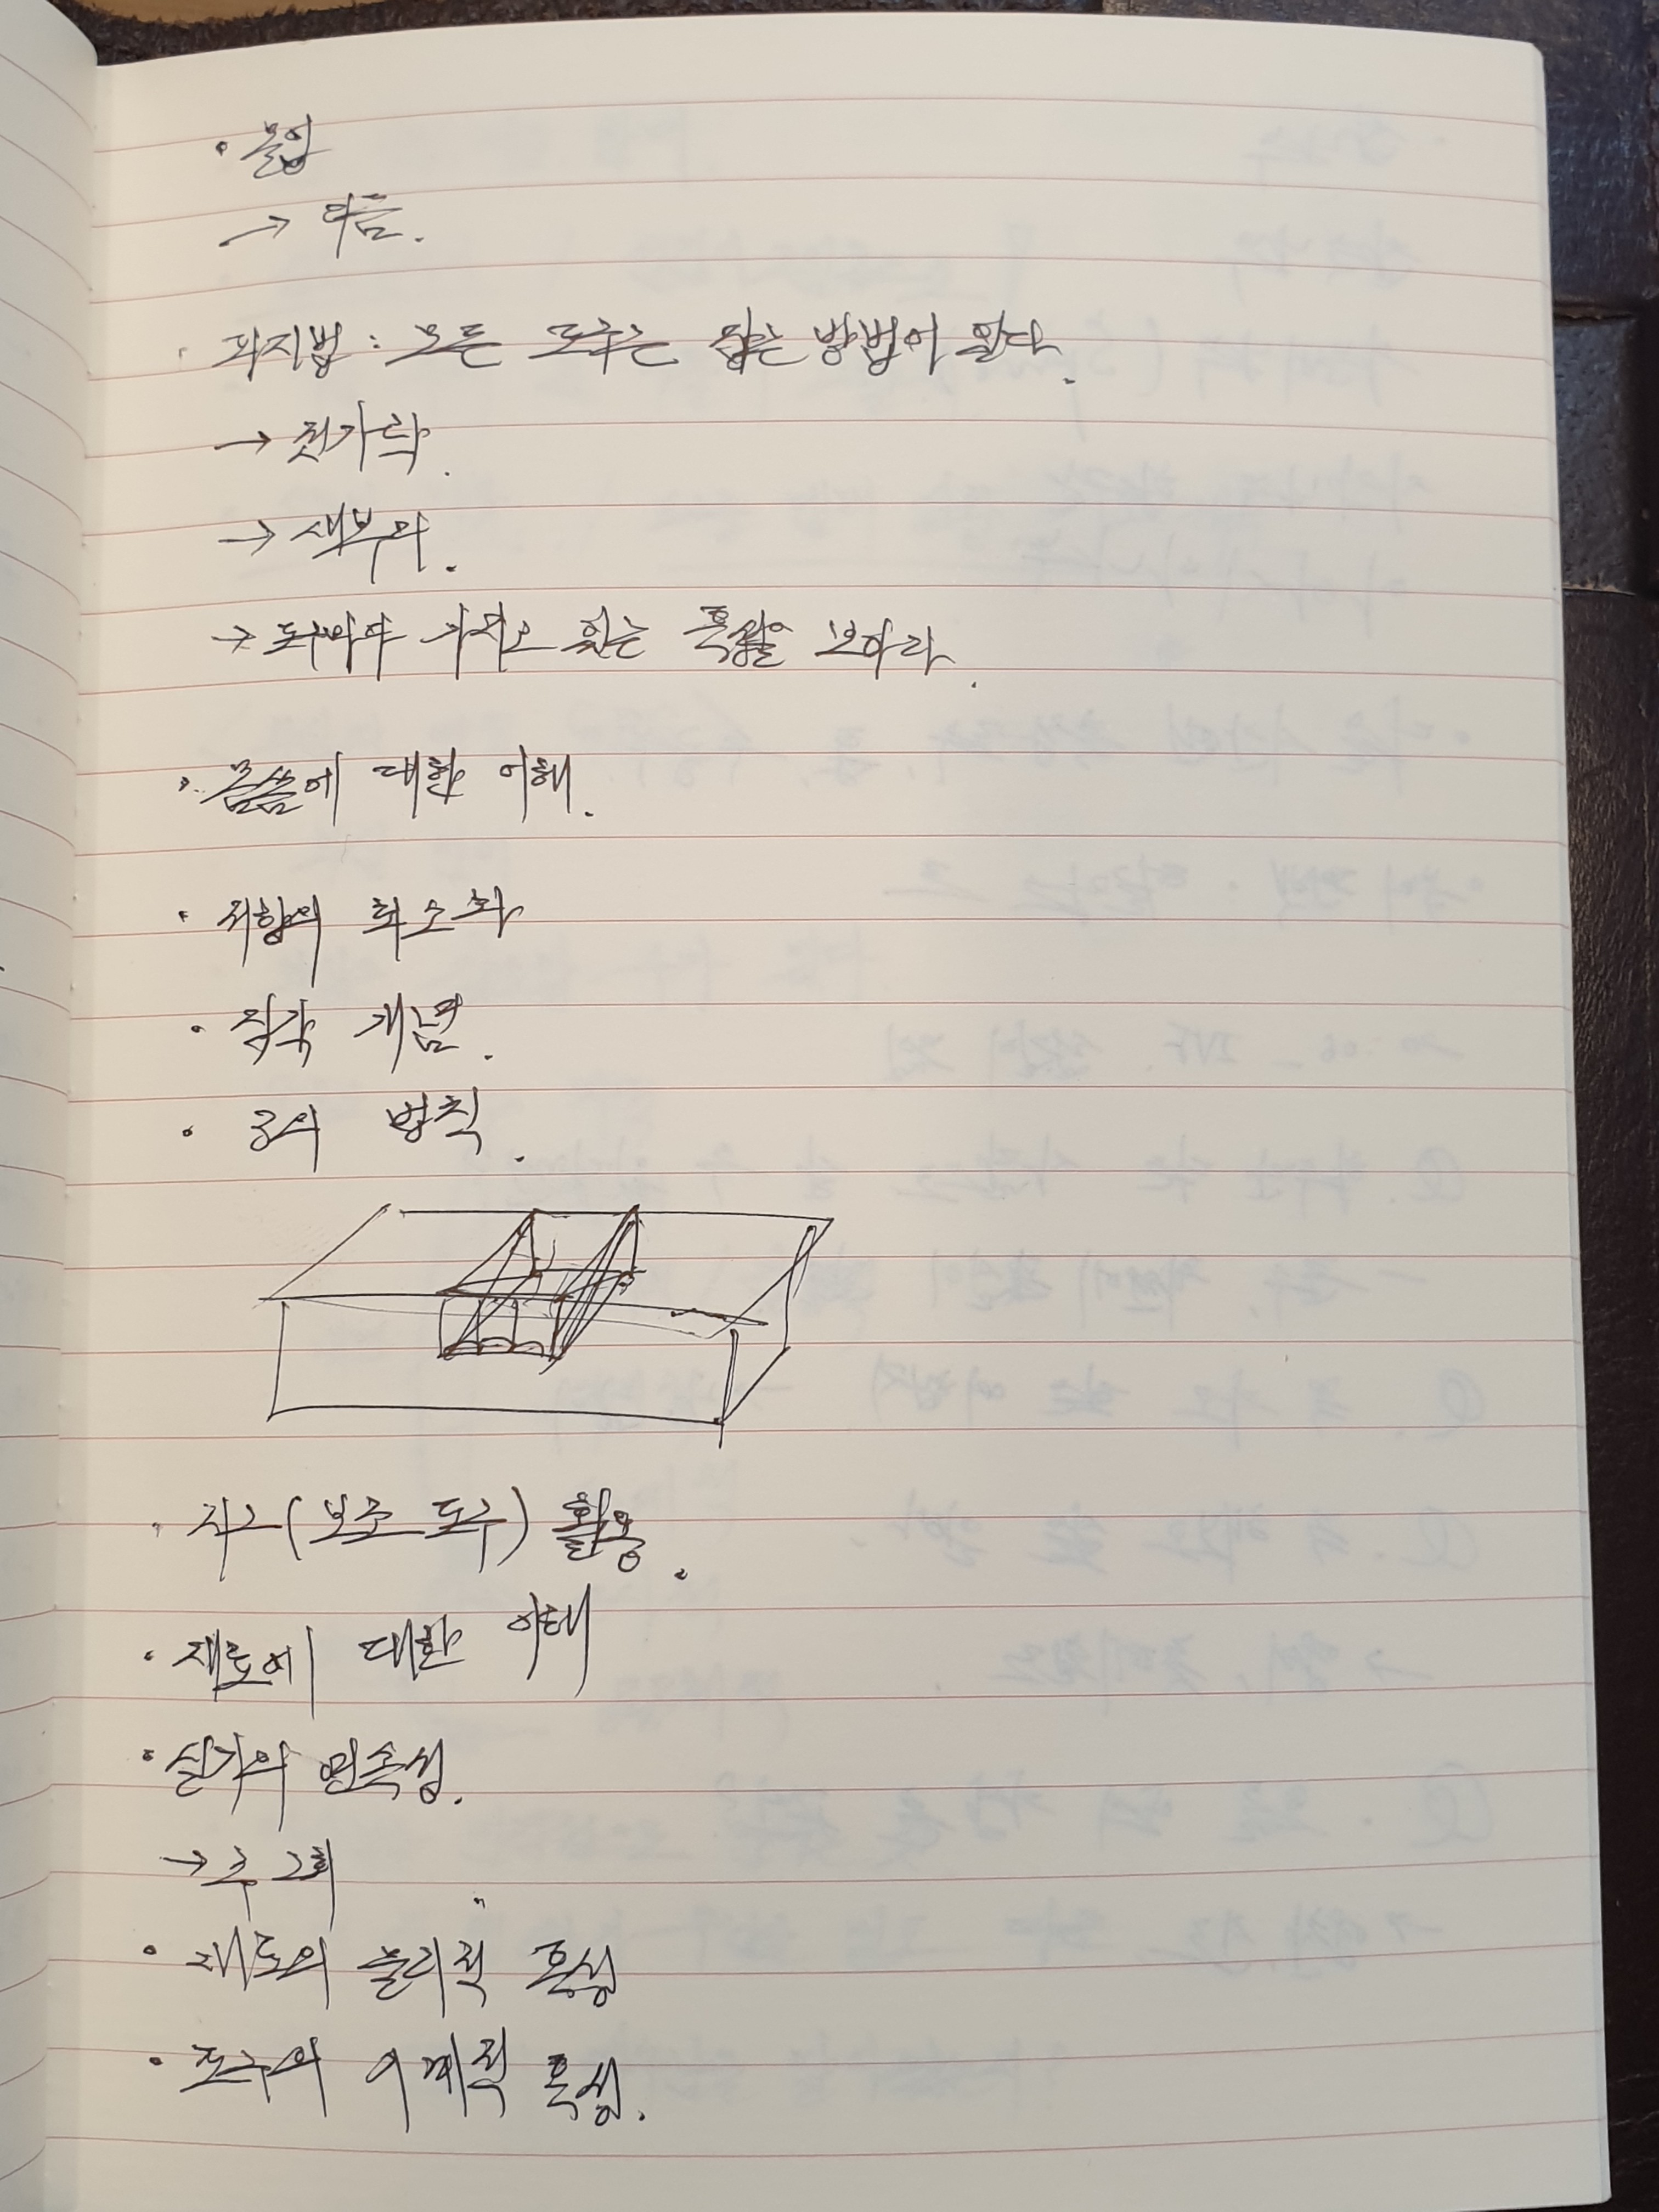 · 몰입
→ 다름.
· 파지법 : 모든 도구는 잡는 방법이 있다.
→ 젓가락.
→
→ 도구마다 가지고 있는 특성을 보아라.
· 몸씀에 대한 이해.
· 저항의 최소화
· 직각 개념.
· 3의 법칙.
· 지그(보조 도구) 활용.
· 재료에 대한 이해
· 실기의 연속성.
→ 주 2회.
· 재료의 물리적 특성
· 도구의 기계적 특성.